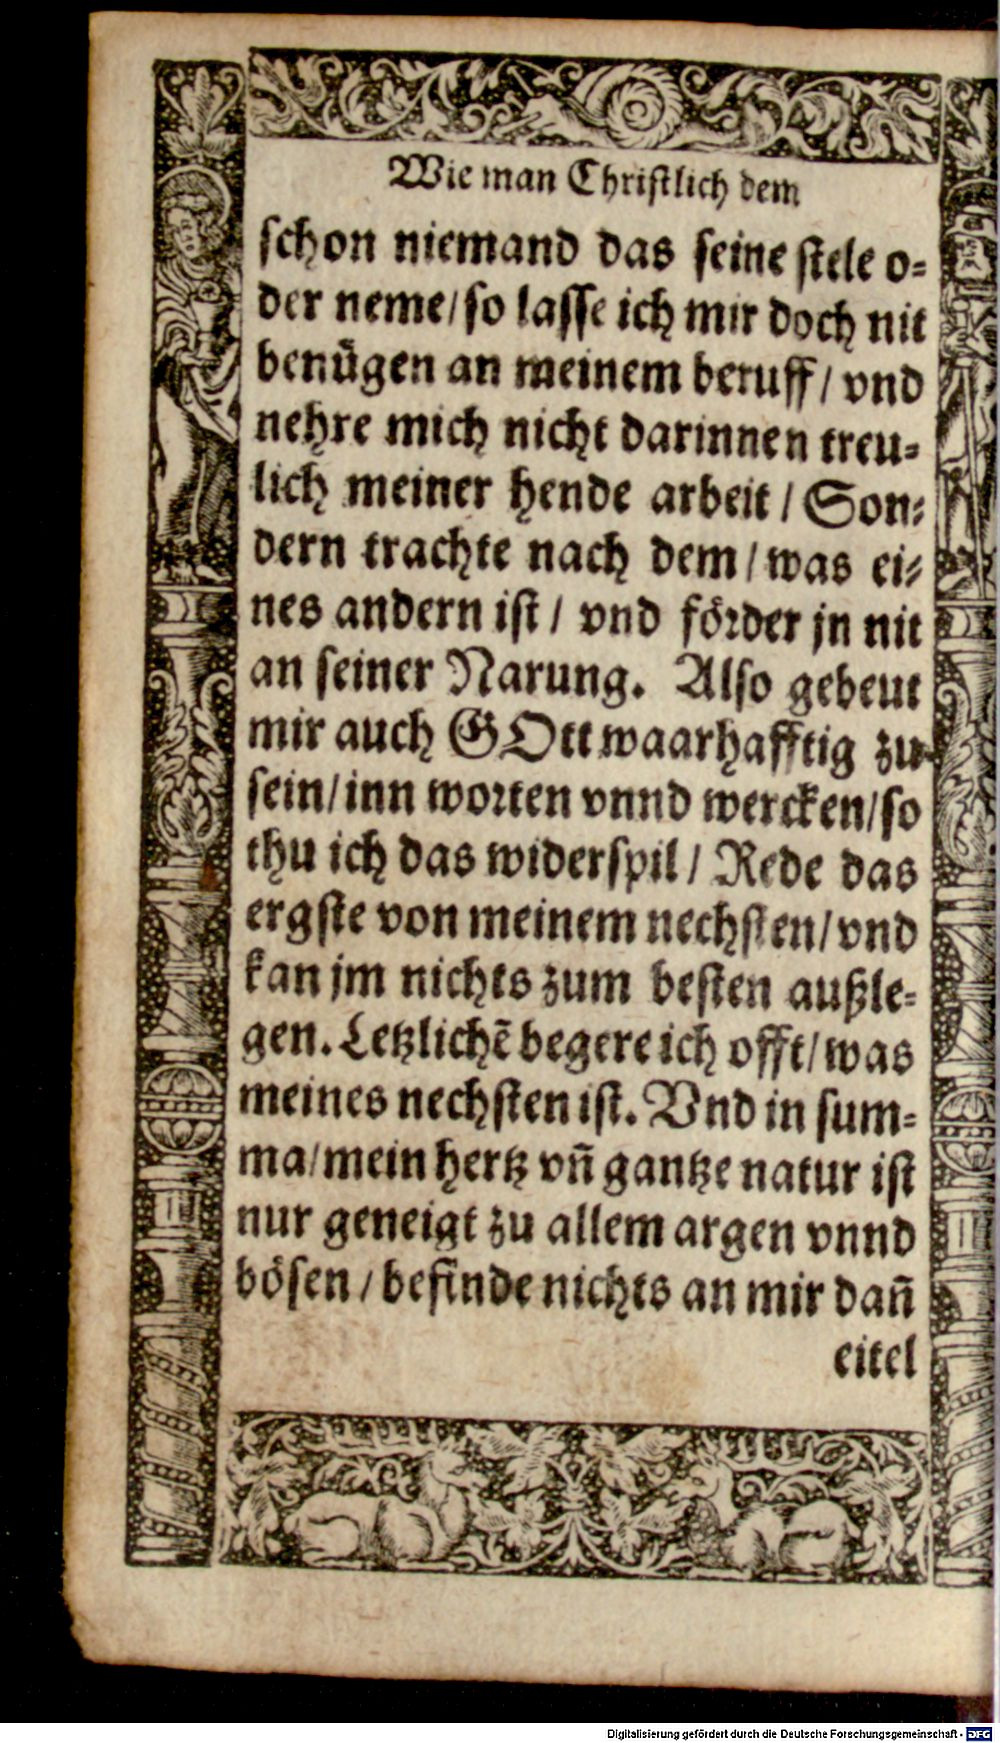 Wie man Christlich dem
schon niemand das seine stele o-
der neme/so lasse ich mir doch nit
benügen an meinem beruff/ vnd
nehre mich nicht darinnen treu-
lich meiner hende arbeit/ Son-
dern trachte nach dem/ was ei-
nes andern ist/ vnd förder jn nit
an seiner Narung. Also gebeut
mir auch GOtt waarhafftig zu
sein/inn worten vnnd wercken/so
thu ich das widerspil/ Rede das
ergste von meinem nechsten/vnd
kan jm nichts zum besten außle-
gen. Letzlichẽ begere ich offt/was
meines nechsten ist. Vnd in sum-
ma/mein hertz vñ gantze natur ist
nur geneigt zu allem argen vnnd
bösen/ befinde nichts an mir dañ
eitel
Digitalisierung gefördert durch die Deutsche Forschungsgemeinschaft - DFG